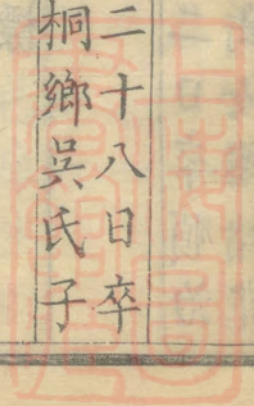 二十八日卒
桐鄉吳氏子